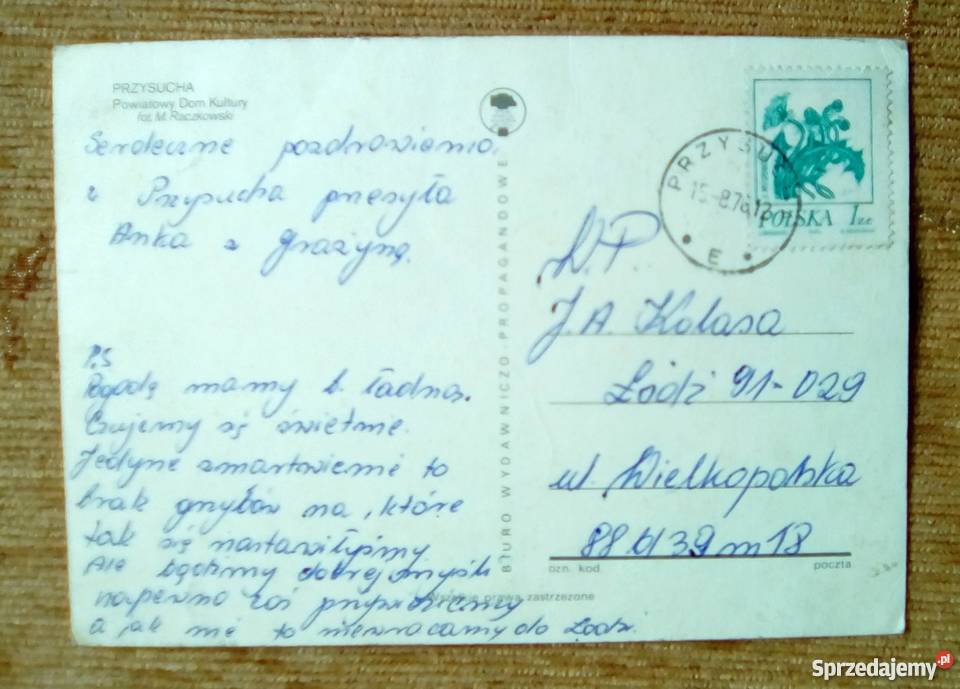 PRZYSUCHA
Powiatowy Dom Kultury
fot. M. Raczkowski
Serdeczne pozdrowienia
z Przysucha przesyła
Anka z Grażyną.
P.S
Pogodę mamy b. ładną.
Czujemy się świetnie.
Jedyne zmartwienie to
brak grzybów na, które
tak się nastawiłyśmy
Ale bądźmy dobrej myśli
napewno coś przywieziemy
a jak nie to niewracamy do Łodzi.
BIURO WYDAWNICZO PROPAGANDOWE
Wszelkie prawa zastrzeżone
PRZYSU
15-8.76.12
E
POLSKA 1 ZŁ
W.P
J.A. Kolasa
Łódź 91-029
ul. Wielkopolska
88 bl 39 m 18
ozn. kod. poczta
Sprzedajemy.pl